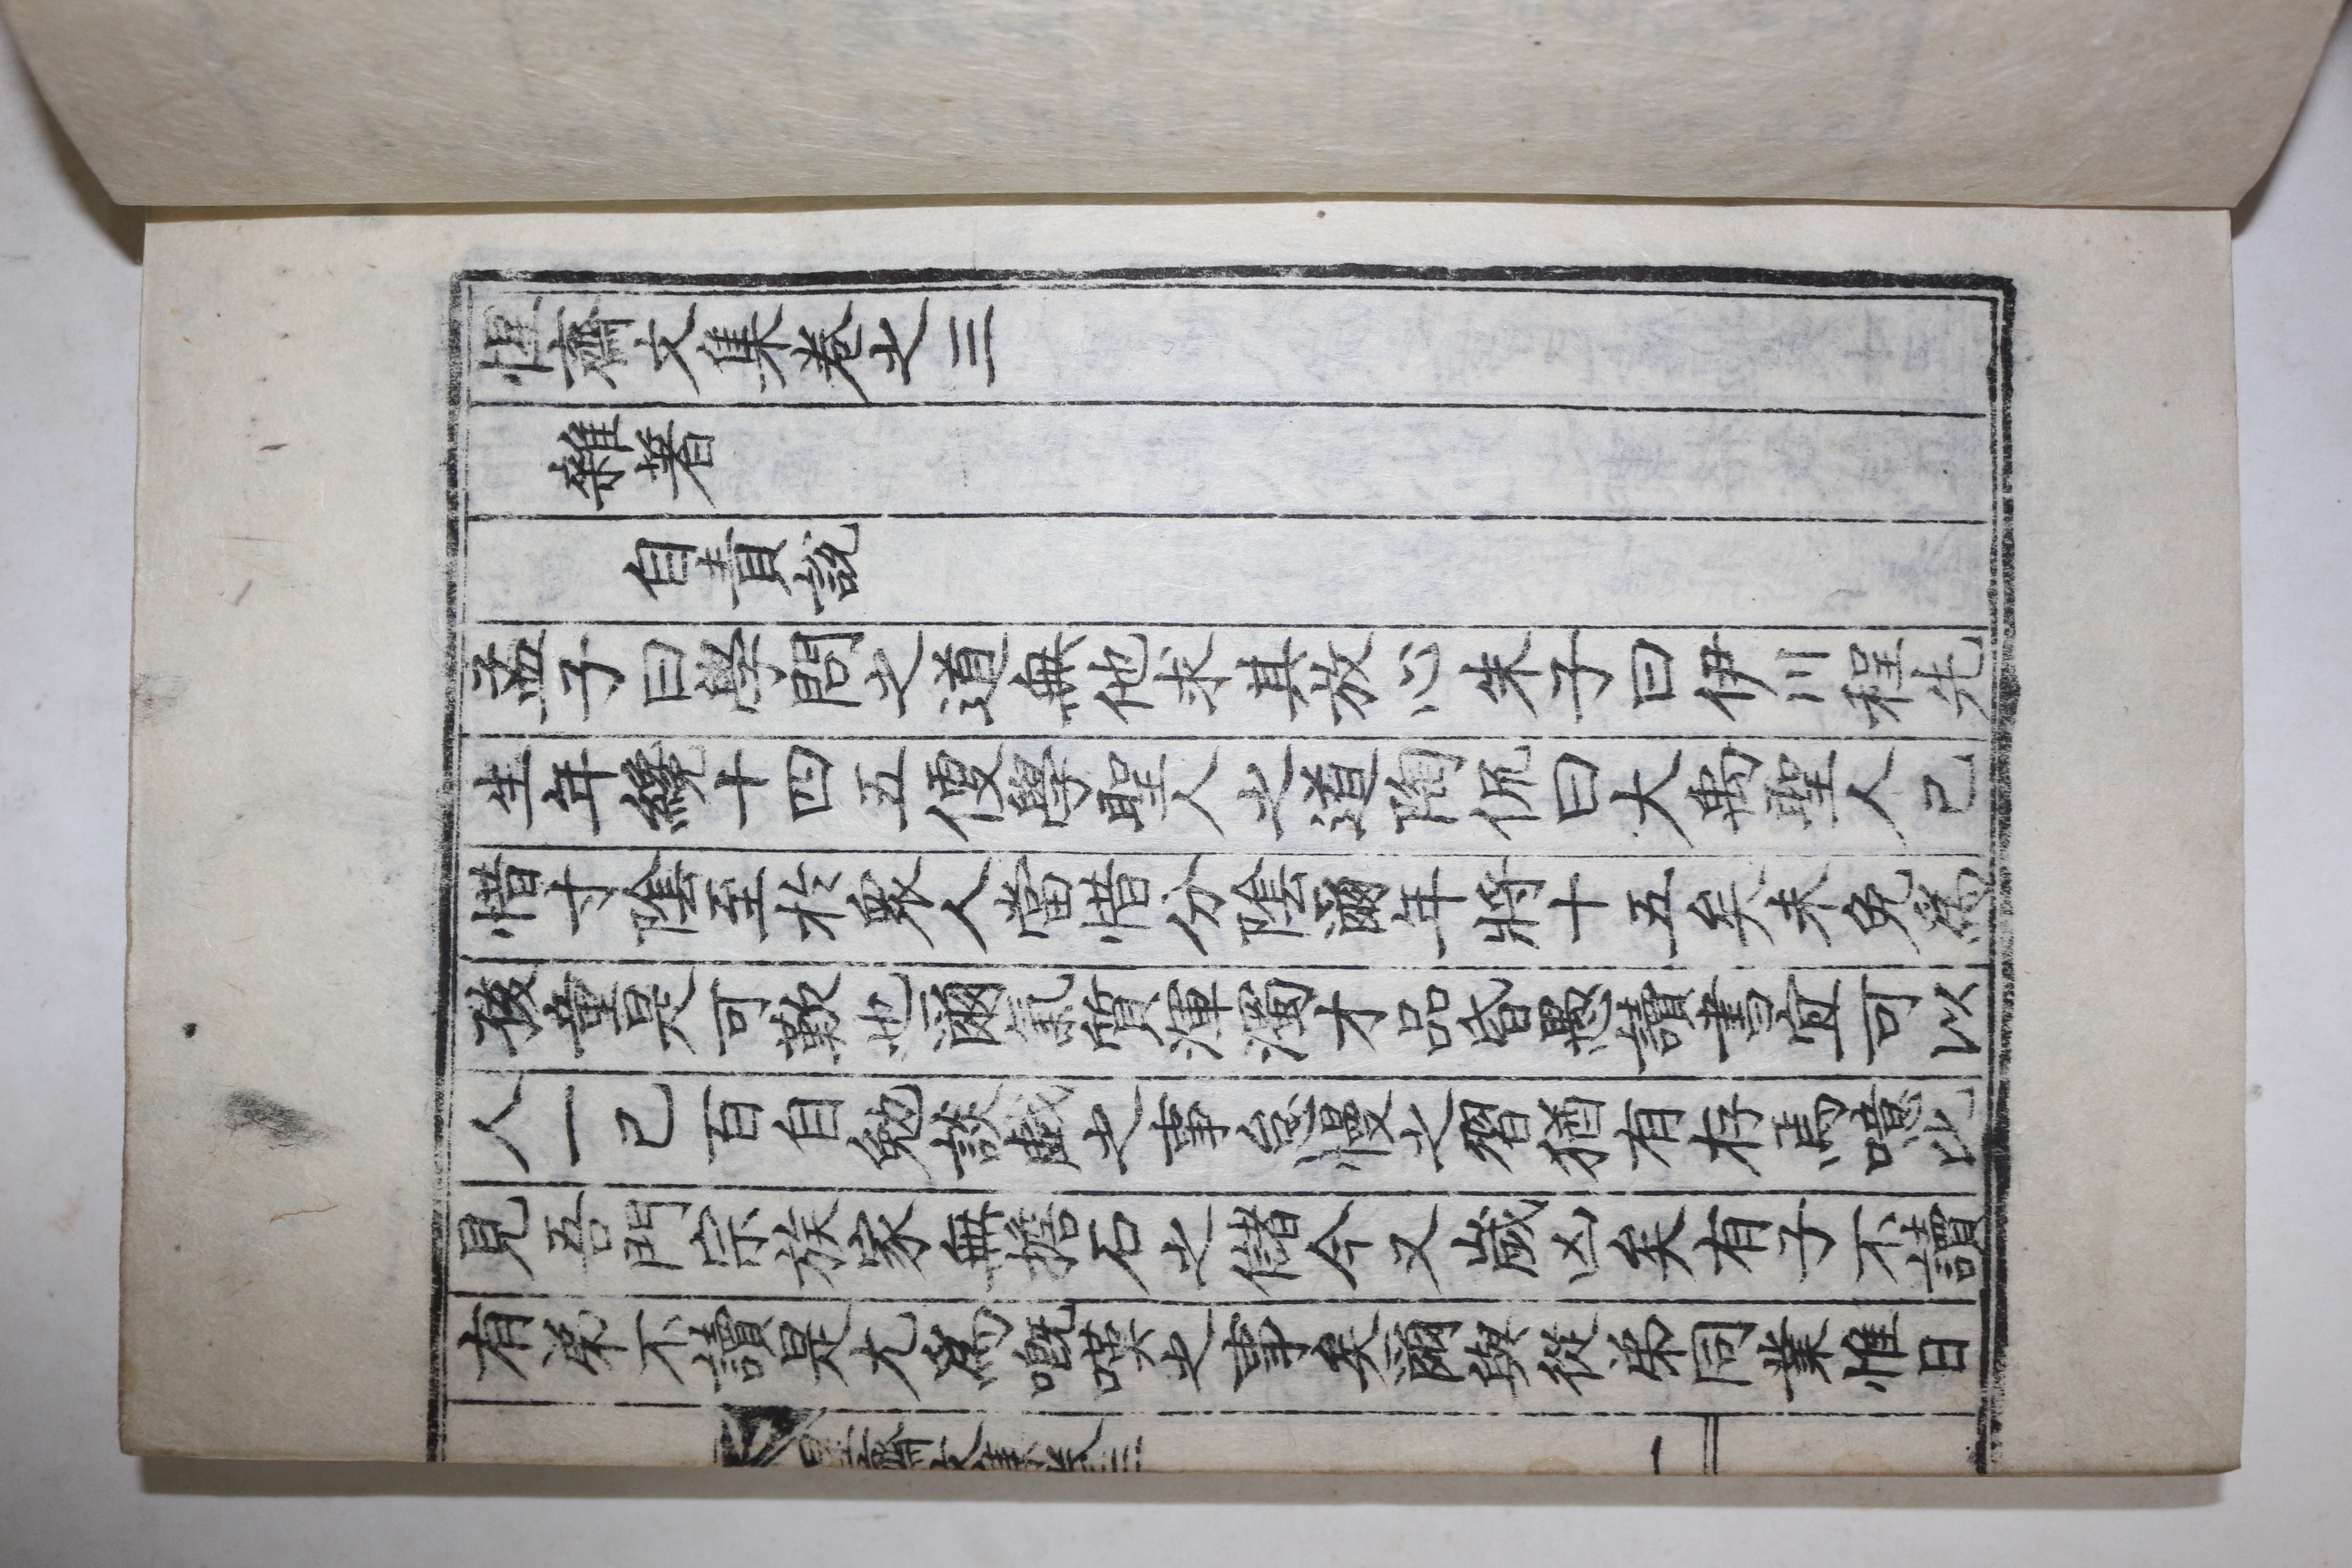 惺齋文集卷之三
雜著
自責說
孟子曰學問之道無他求其放心朱子曰伊川程先
生年纔十四五便學聖人之道陶侃曰大禹聖人己
惜寸陰至於衆人當惜分陰爾年將十五矣未免爲
孩童是可歎也爾氣質渾濁才品昏愚讀書宜可以
人一己百自勉談戱之事怠慢之習猶有存焉噫比
見吾門宗族家無擔石之儲今又歲凶矣有子不讀
有弟不讀是尤爲慨嘆之事矣爾與從弟同業惟日
惺齋文集卷三 一